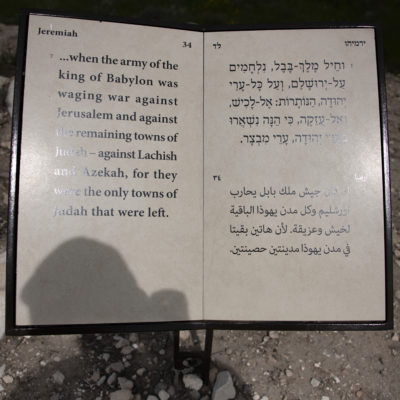 Jeremiah
34
7 ...when the army of the
king of Babylon was
waging war against
Jerusalem and against
the remaining towns of
Judah – against Lachish
and Azekah, for they
were the only towns of
Judah that were left.
ירמיהו
לד
וְחֵיל מֶלֶךְ-בָּבֶל, נִלְחָמִים
עַל-יְרוּשָׁלִַם, וְעַל כָּל-עָרֵי
יְהוּדָה, הַנּוֹתָרוֹת: אֶל-לָכִישׁ,
וְאֶל-עֲזֵקָה, כִּי הֵנָּה נִשְׁאֲרוּ
יְהוּדָה, עָרֵי מִבְצָר.
٣٤
جيش ملك بابل يحارب
أورشليم وكل مدن يهوذا الباقية
لخيش وعزيقة. لأن هاتين بقيتا
في مدن يهوذا مدينتين حصينتين.